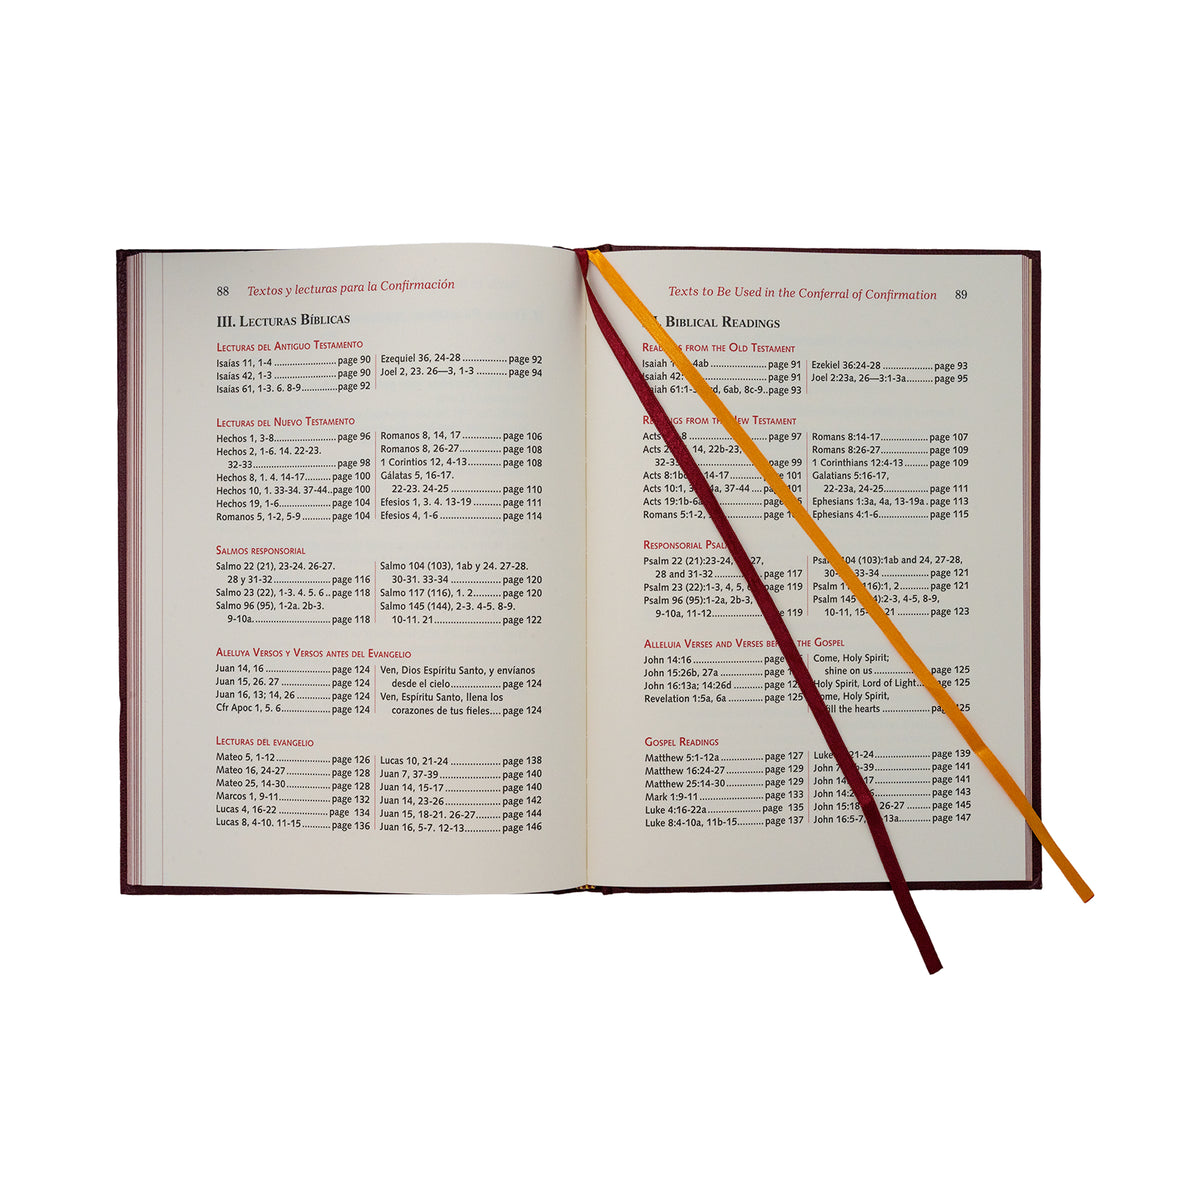 88 Textos y lecturas para la Confirmación
III. Lecturas Bíblicas
Lecturas del Antiguo Testamento
Isaías 11, 1-4 ........................ page 90
Isaías 42, 1-3 ........................ page 90
Isaías 61, 1-3. 6. 8-9 ............. page 92
Ezequiel 36, 24-28 ................ page 92
Joel 2, 23. 26—3, 1-3 ........... page 94
Lecturas del Nuevo Testamento
Hechos 1, 3-8....................... page 96
Hechos 2, 1-6. 14. 22-23.
32-33.............................. page 98
Hechos 8, 1. 4. 14-17......... page 100
Hechos 10, 1. 33-34. 37-44..page 100
Hechos 19, 1-6 .................. page 104
Romanos 5, 1-2, 5-9 .......... page 104
Romanos 8, 14, 17 ............. page 106
Romanos 8, 26-27.............. page 108
1 Corintios 12, 4-13........... page 108
Gálatas 5, 16-17.
22-23. 24-25 ................. page 110
Efesios 1, 3. 4. 13-19 ......... page 111
Efesios 4, 1-6 ..................... page 114
Salmos responsorial
Salmo 22 (21), 23-24. 26-27.
28 y 31-32 .................... page 116
Salmo 23 (22), 1-3. 4. 5. 6 .. page 118
Salmo 96 (95), 1-2a. 2b-3.
9-10a............................ page 118
Salmo 104 (103), 1ab y 24. 27-28.
30-31. 33-34 .................. page 120
Salmo 117 (116), 1. 2 ......... page 120
Salmo 145 (144), 2-3. 4-5. 8-9.
10-11. 21....................... page 122
Aleluya Versos y Versos antes del Evangelio
Juan 14, 16 ....................... page 124
Juan 15, 26. 27 ................. page 124
Juan 16, 13; 14, 26 ............ page 124
Cfr Apoc 1, 5. 6................. page 124
Ven, Dios Espíritu Santo, y envíanos
desde el cielo................. page 124
Ven, Espíritu Santo, llena los
corazones de tus fieles.... page 124
Lecturas del evangelio
Mateo 5, 1-12 ................... page 126
Mateo 16, 24-27 ................ page 128
Mateo 25, 14-30 ................ page 128
Marcos 1, 9-11 .................. page 132
Lucas 4, 16-22 .................. page 134
Lucas 8, 4-10. 11-15.......... page 136
Lucas 10, 21-24 ................. page 138
Juan 7, 37-39 .................... page 140
Juan 14, 15-17 ................... page 140
Juan 14, 23-26 ................... page 142
Juan 15, 18-21. 26-27......... page 144
Juan 16, 5-7. 12-13............ page 146
Texts to Be Used in the Conferral of Confirmation 89
Biblical Readings
from the Old Testament
Isaiah 4ab ........................ page 91
Isaiah 42: ........................ page 91
6ab, 8c-9..page 93
Ezekiel 36:24-28 .................. page 93
Joel 2:23a, 26—3:1-3a......... page 95
from the New Testament
Acts ........................ page 97
Acts 14, 22b-23,
page 99
Acts 14-17 ........... page 101
Acts 10:1, 34, 37-44 ....
Acts 19:1b-6a
Romans 5:1-2,
Romans 8:14-17................ page 107
Romans 8:26-27................ page 109
1 Corinthians 12:4-13........ page 109
Galatians 5:16-17,
22-23a, 24-25................ page 111
Ephesians 1:3a, 4a, 13-19a . page 113
Ephesians 4:1-6................. page 115
Responsorial
Psalm 22 (21):23-24,
28 and 31-32 page 117
Psalm 23 (22):1-3, 4, 5,
Psalm 96 (95):1-2a, 2b-3,
9-10a, 11-12...............
104 (103):1ab and 24, 27-28,
33-34 .................. page 121
Psalm 2 ......... page 121
Psalm 145 2-3, 4-5, 8-9,
10-11, 21 ................ page 123
Alleluia Verses and Verses the Gospel
John 14:16 .................... page
John 15:26b, 27a ............ page
John 16:13a; 14:26d ......... page
Revelation 1:5a, 6a ......... page 125
Come, Holy Spirit;
shine on us................. page 125
Holy Spirit, Lord of Light... page 125
Come, Holy Spirit,
fill the hearts .............
Gospel Readings
Matthew 5:1-12a.............. page 127
Matthew 16:24-27 ............ page 129
Matthew 25:14-30 ............ page 129
Mark 1:9-11..................... page 133
Luke 4:16-22a .................. page 135
Luke 8:4-10a, 11b-15......... page 137
Luke 21-24 .................. page 139
John 39 .................. page 141
John page 141
John page 143
John 26-27 ........ page 145
John 16:5-7, 13a.......... page 147